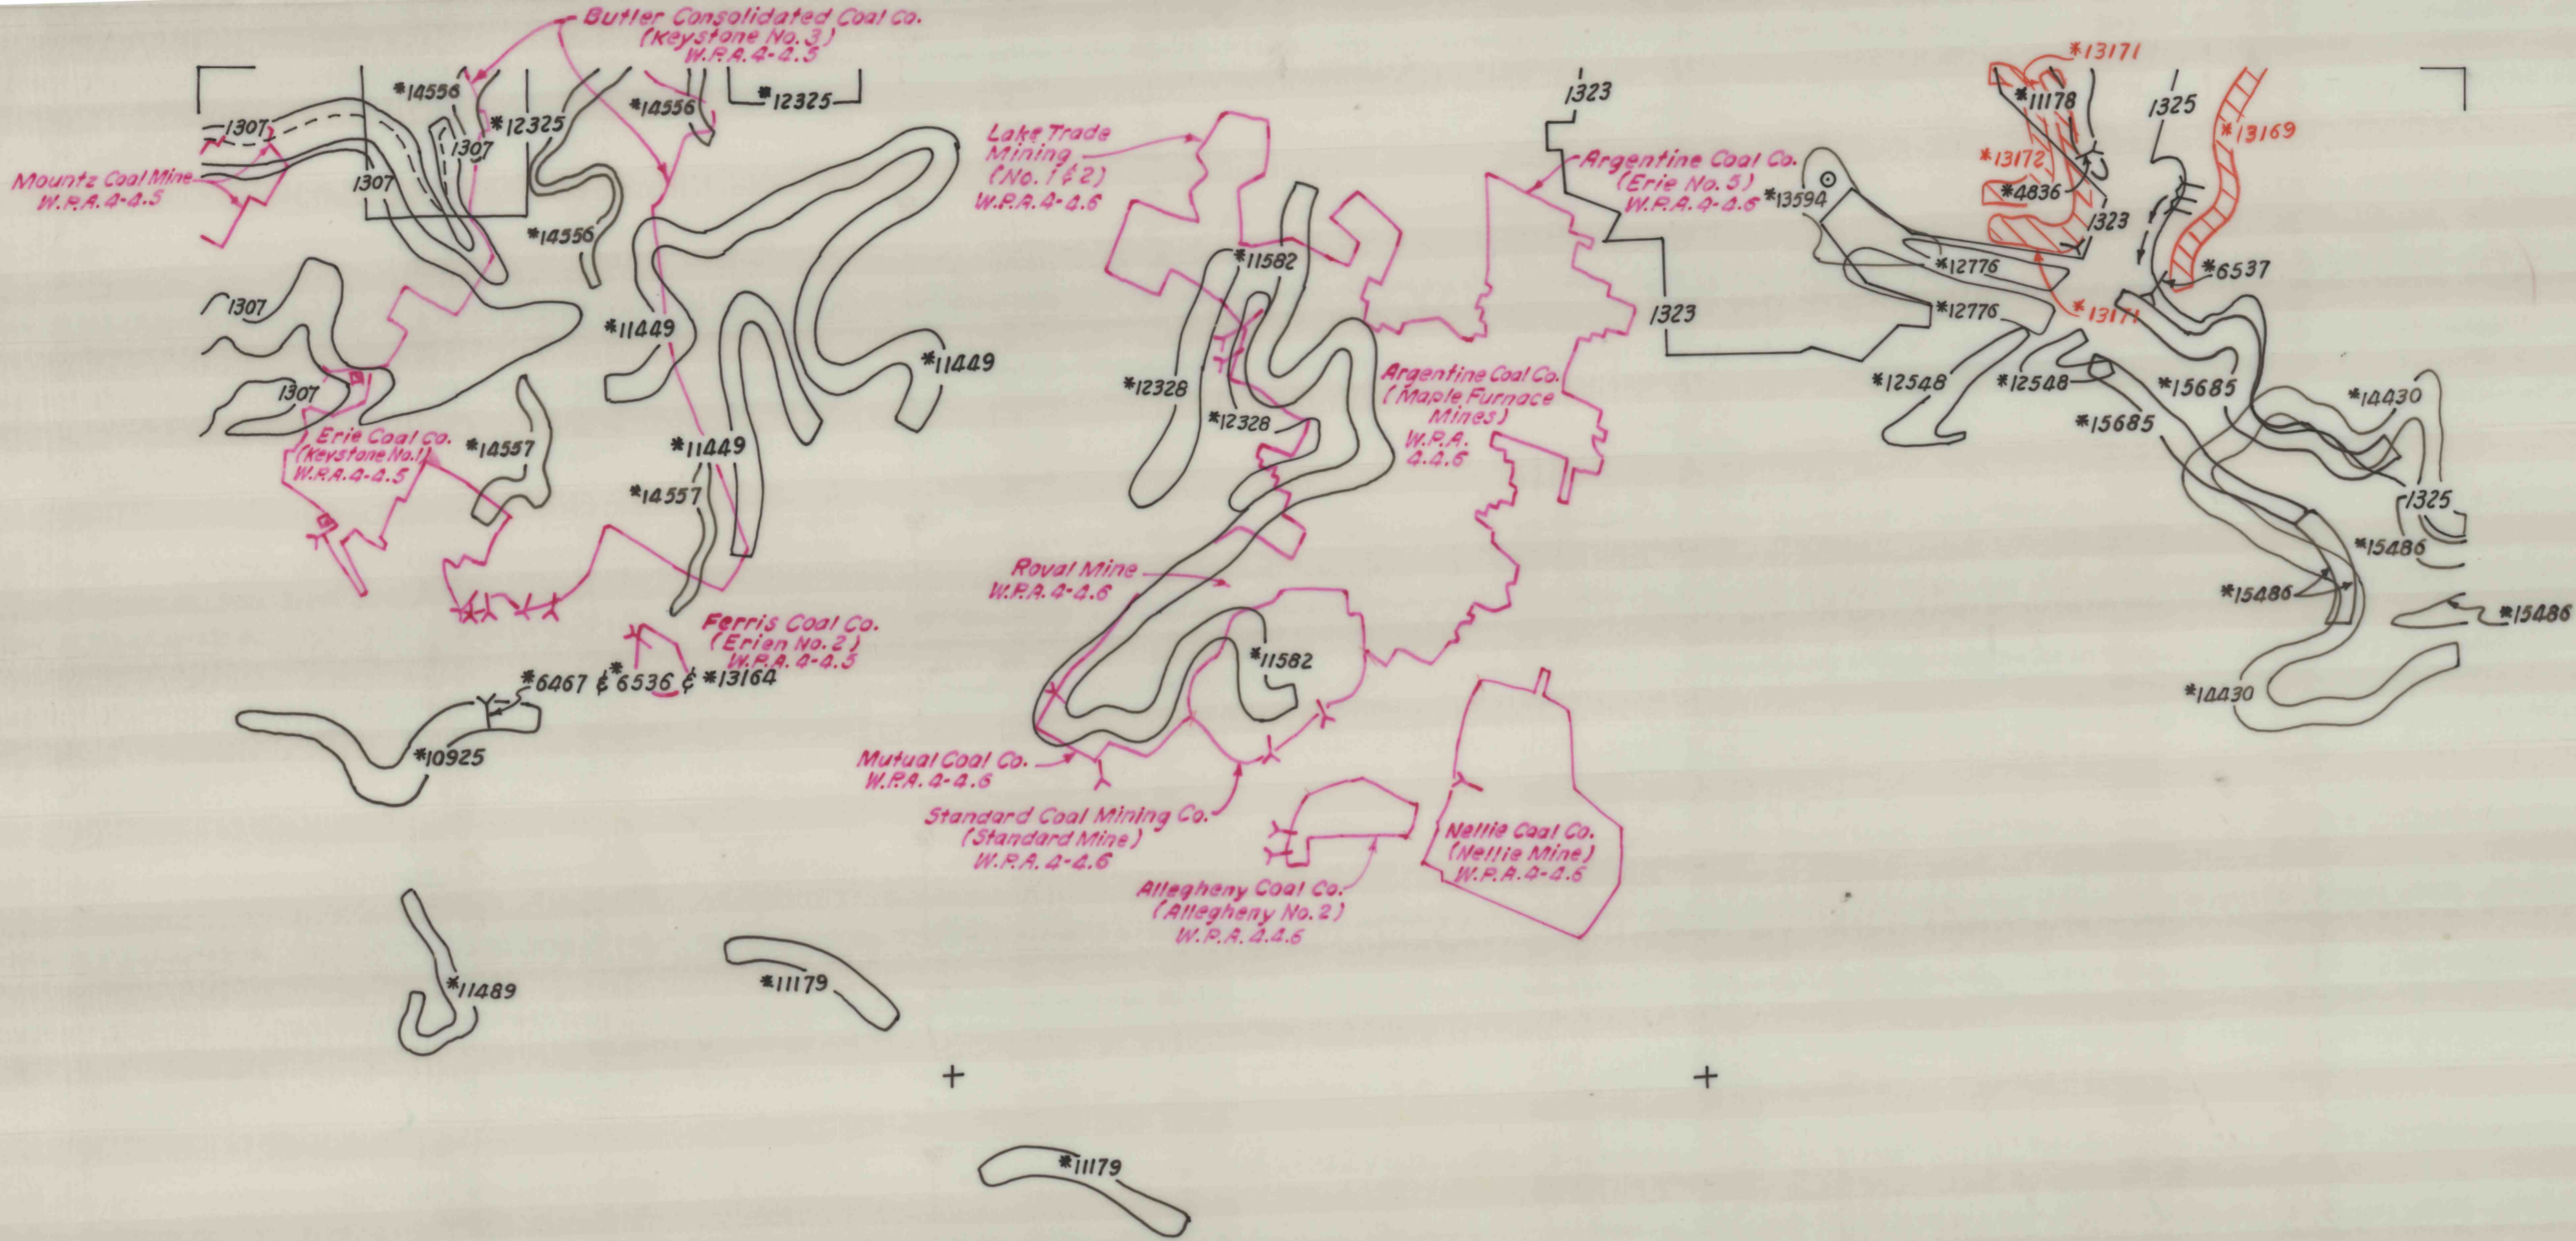 Butler Consolidated Coal Co.
(Keystone No. 3)
W.P.A. 4-4.5
*14556
*12325
*14556
*12325
1307
1307
1307
Mountz Coal Mine
W.P.A. 4-4.5
*14556
1307
1307
*11449
*11449
*11449
*14557
*14557
Erie Coal Co.
(Keystone No.1)
W.P.A. 4-4.5
Ferris Coal Co.
(Erien No. 2)
W.P.A. 4-4.5
*6467 & *6536 & *13164
*10925
*11489
*11179
*11179
Lake Trade
Mining
(No. 1 & 2)
W.P.A. 4-4.6
*11582
*12328
*12328
Argentine Coal Co.
(Erie No. 5)
W.P.A. 4-4.6
Argentine Coal Co.
(Maple Furnace
Mines)
W.P.A.
4.4.6
Royal Mine
W.P.A. 4-4.6
*11582
Mutual Coal Co.
W.P.A. 4-4.6
Standard Coal Mining Co.
(Standard Mine)
W.P.A. 4-4.6
Allegheny Coal Co.
(Allegheny No. 2)
W.P.A. 4.4.6
Nellie Coal Co.
(Nellie Mine)
W.P.A. 4-4.6
1323
1323
*13594
*13171
*11178
*13172
*4836
1323
1325
*13169
*6537
*12776
*12776
*13171
*12548
*12548
*15685
*15685
*14430
1325
*15486
*15486
*15486
*14430